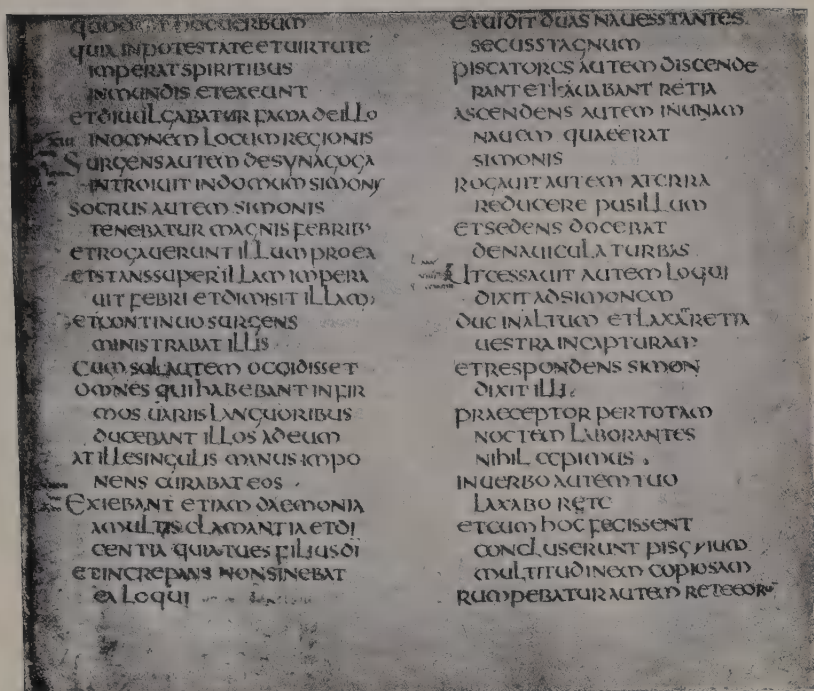 QUOD EST HOC UERBUM
QUIA IN POTESTATE ET UIRTUTE
IMPERAT SPIRITIBUS
INMUNDIS ET EXEUNT
ET DIUULGABATUR FAMA DE ILLO
IN OMNEM LOCUM REGIONIS
SURGENS AUTEM DE SYNAGOGA
INTROIUIT IN DOMUM SIMONIS
SOCRUS AUTEM SIMONIS
TENEBATUR MAGNIS FEBRIB·
ET ROGAUERUNT ILLUM PRO EA
ET STANS SUPER ILLAM IMPERA
UIT FEBRI ET DIMISIT ILLAM
ET CONTINUO SURGENS
MINISTRABAT ILLIS
CUM SOL AUTEM OCCIDISSET
OMNES QUI HABEBANT INFIR
MOS UARIIS LANGUORIBUS
DUCEBANT ILLOS AD EUM
AT ILLE SINGULIS MANUS IMPO
NENS CURABAT EOS
EXIEBANT ETIAM DAEMONIA
A MULTIS CLAMANTIA ET DI
CENTIA QUIA TU ES FILIUS DI
ET INCREPANS NON SINEBAT
EA LOQUI
ET UIDIT DUAS NAUES STANTES
SECUS STAGNUM
PISCATORES AUTEM DISCENDE
RANT ET LAUABANT RETIA
ASCENDENS AUTEM IN UNAM
NAUEM QUAE ERAT
SIMONIS
ROGAUIT AUTEM A TERRA
REDUCERE PUSILLUM
ET SEDENS DOCEBAT
DE NAUICULA TURBAS
UT CESSAUIT AUTEM LOQUI
DIXIT AD SIMONEM
DUC IN ALTUM ET LAXA RETIA
UESTRA IN CAPTURAM
ET RESPONDENS SIMON
DIXIT ILLI
PRAECEPTOR PER TOTAM
NOCTEM LABORANTES
NIHIL CEPIMUS
IN UERBO AUTEM TUO
LAXABO RETE
ET CUM HOC FECISSENT
CONCLUSERUNT PISCIUM
MULTITUDINEM COPIOSAM
RUMPEBATUR AUTEM RETE EOR